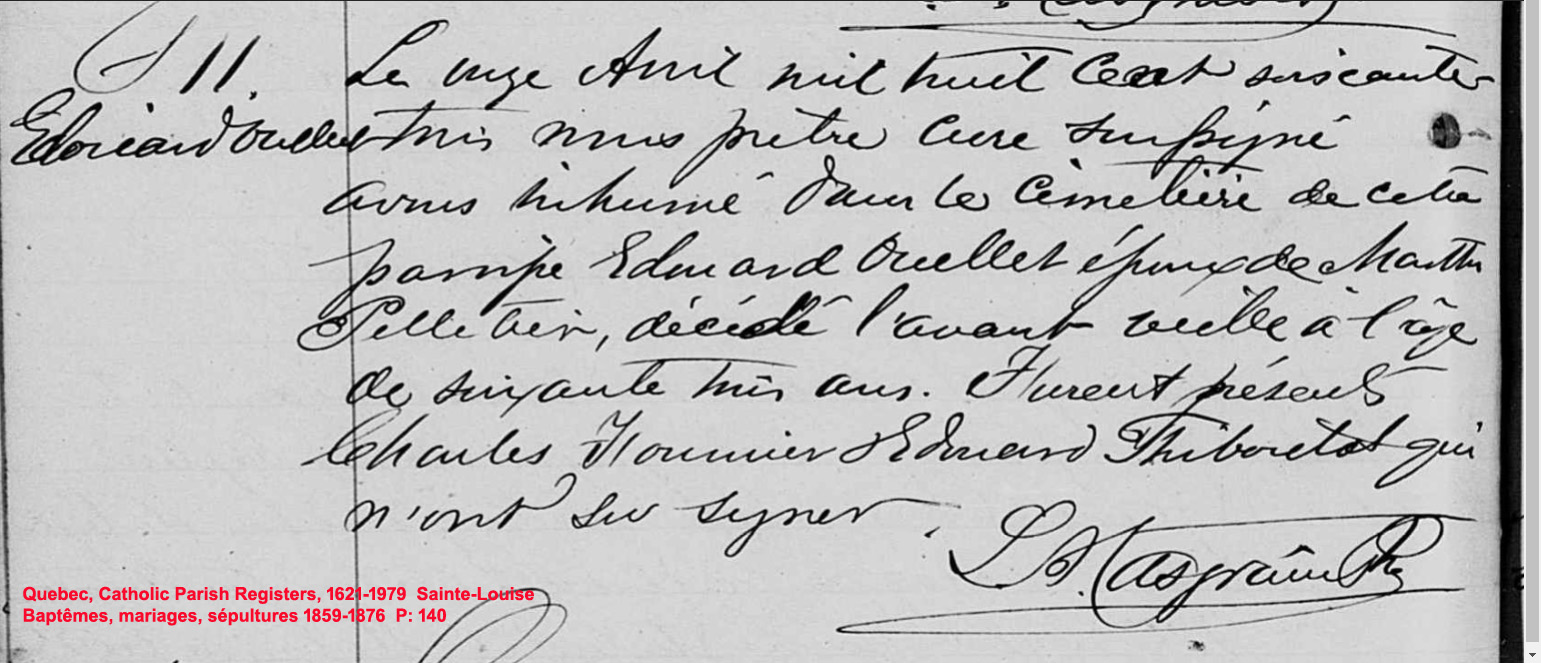 S 11.
Edouard Ouellet
Le onze Avril mil huit Cent soixante-
trois nous prêtre Curé soussigné
avons inhumé dans le Cimetière de cette
paroisse Edouard Ouellet époux de Marthe
Pelletier, décédé l'avant veille à l'âge
de soixante trois ans. Furent présents
Charles Fournier & Edouard Thiboutot qui
n'ont su signer.
Casgrain Ptre
Quebec, Catholic Parish Registers, 1621-1979 Sainte-Louise
Baptêmes, mariages, sépultures 1859-1876 P: 140